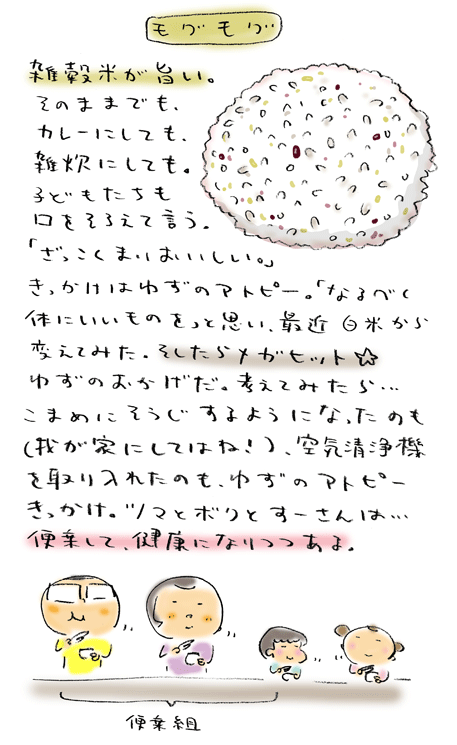 モグモグ
雑穀米が旨い。
そのままでも、
カレーにしても、
雑炊にしても。
子どもたちも
口をそろえて言う。
「ざっこくまいはいしい。」
きっかけはゆずのアトピー。「なるべく
体にいいものを」っと思い、最近白米から
変えてみた。そしたらメガヒット☆
ゆずのおかげだ。考えてみたら…
こまめにそうじするようになったのも
(我が家にしてはね!)、空気清浄機
を取り入れたのも、ゆずのアトピー
きっかけ。ツマとボクとすーさんは…
便乗して、健康になりつつあるよ。
便乗組